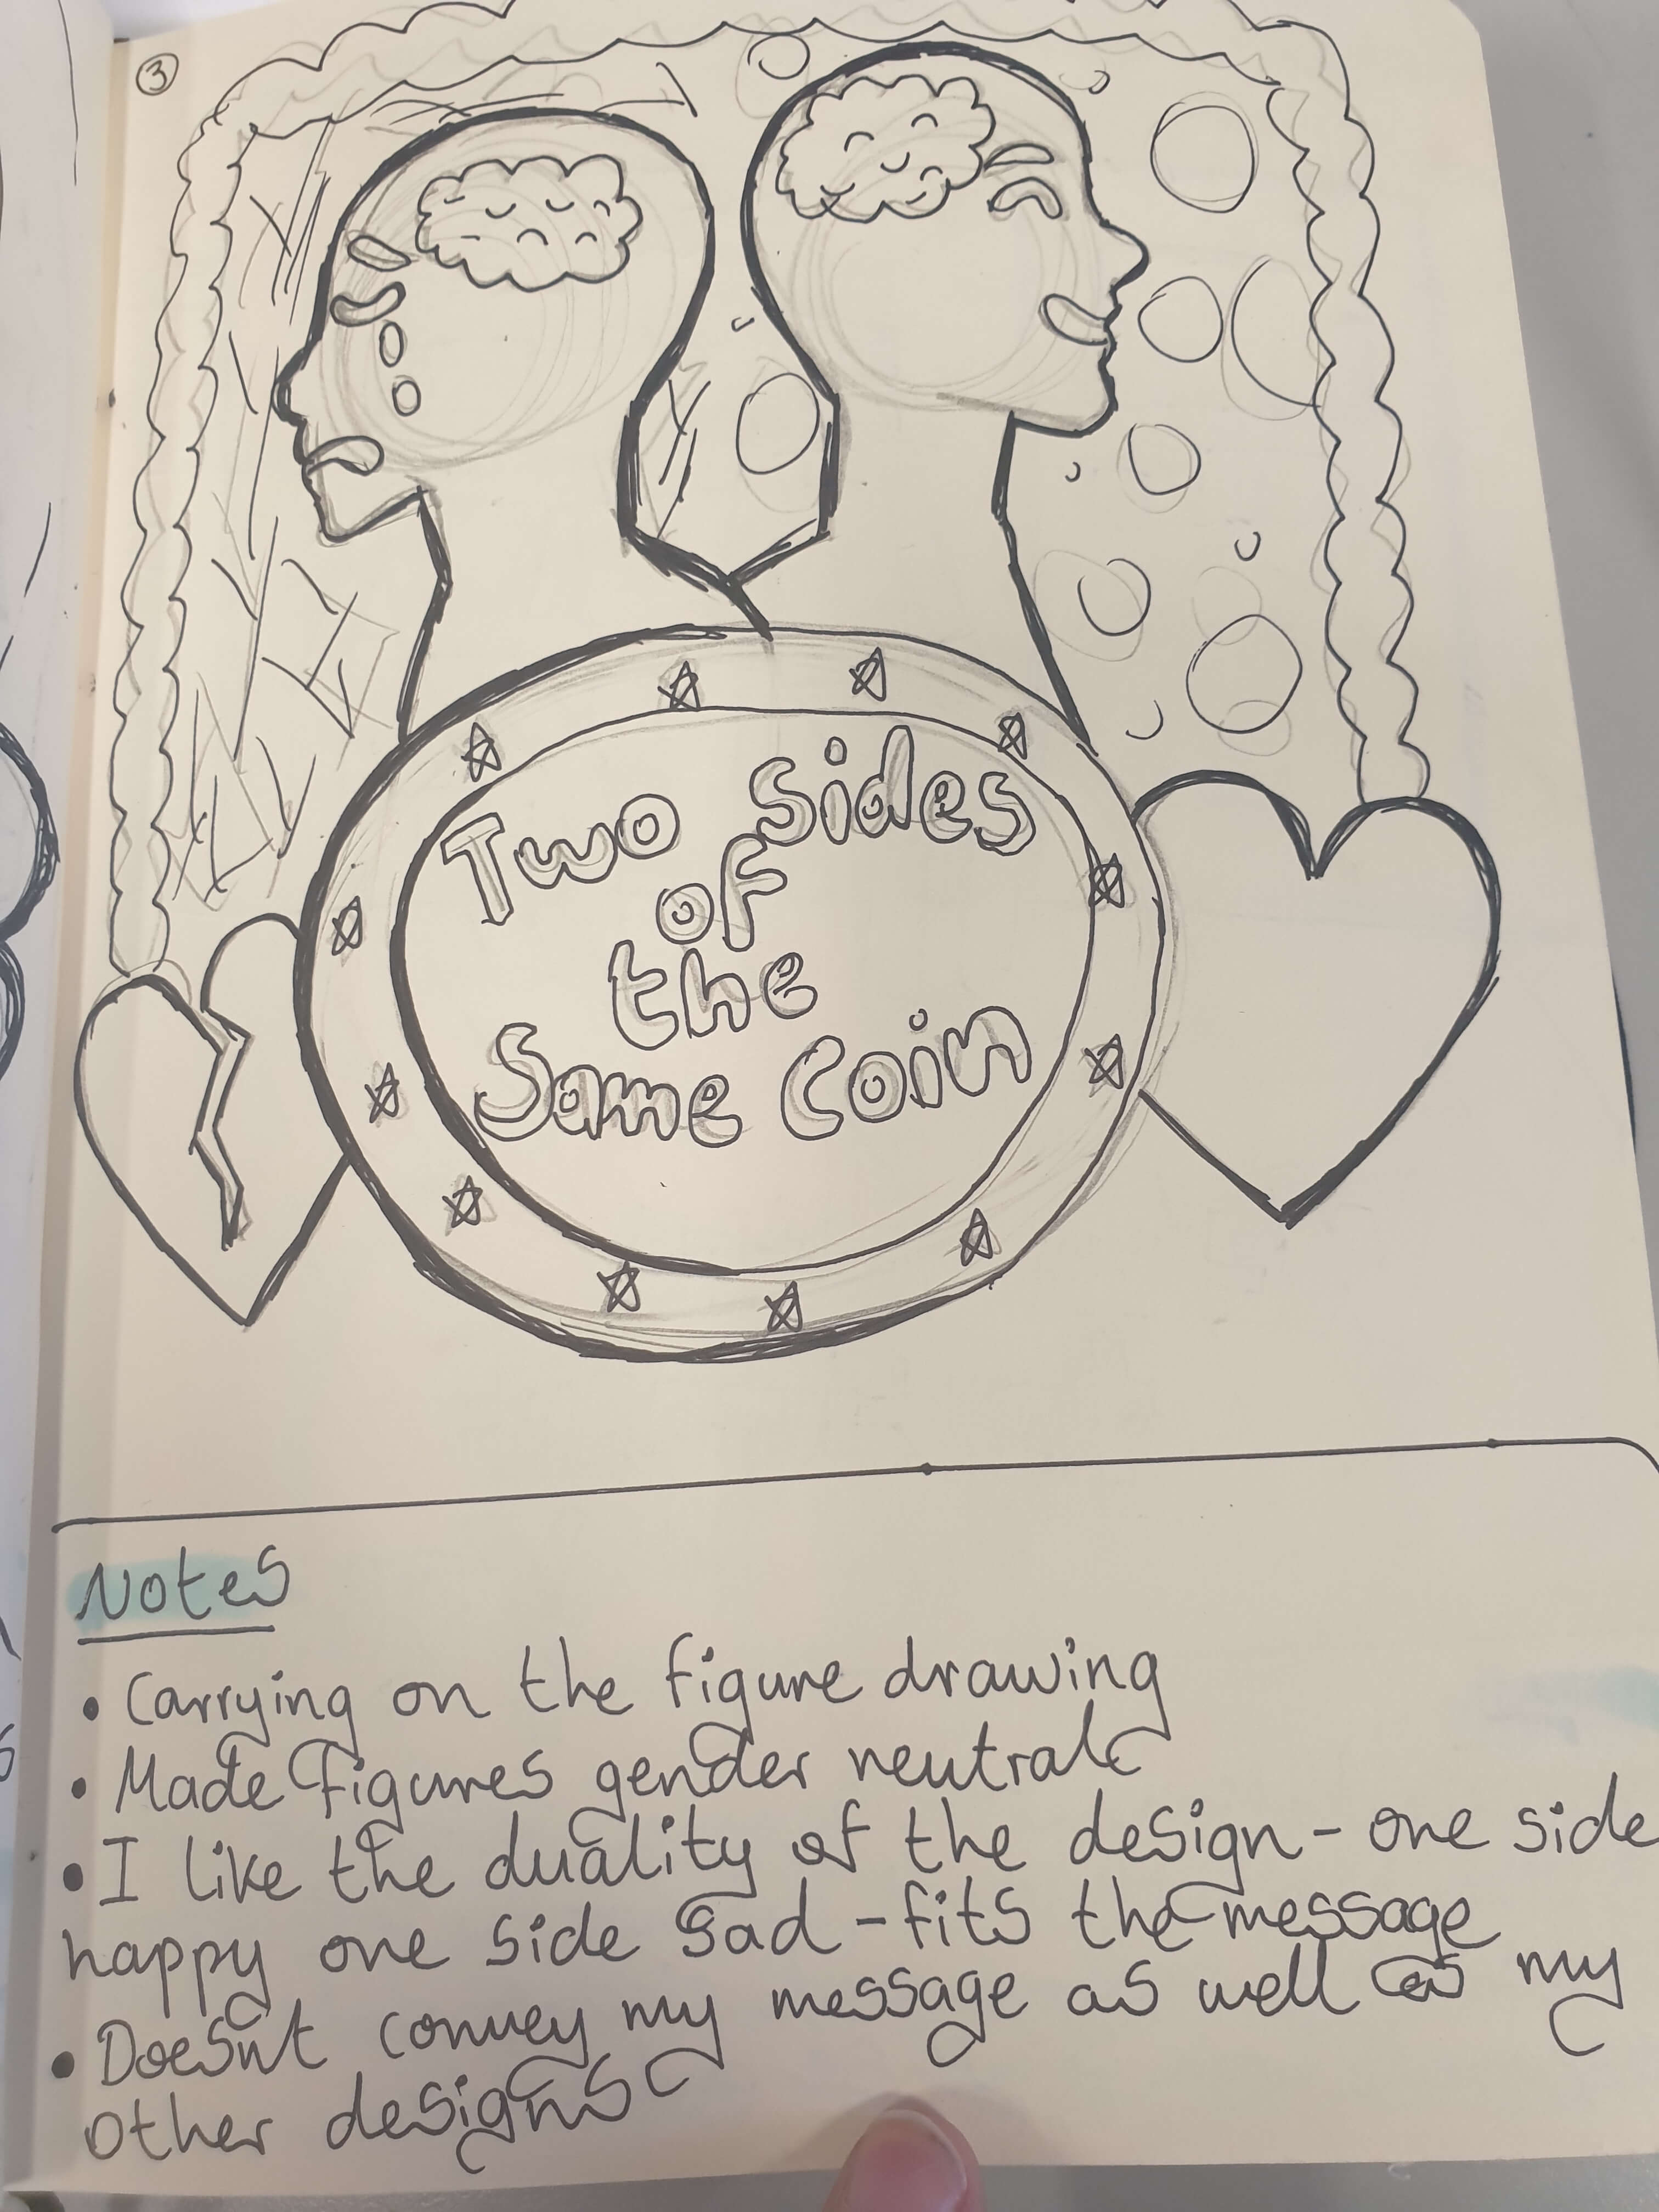 3
Two sides
of
the
Same Coin
Notes
• Carrying on the figure drawing
• Made figures gender neutral
• I like the duality of the design - one side
happy one side sad - fits the message
• Doesn't convey my message as well as my
other designs